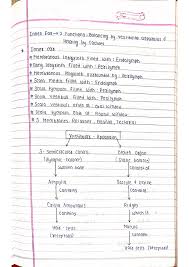 Inner Ear → 2 Functions: Balancing by Vestibular apparatus &
Hearing by Cochlea
Inner Ear
Membranous labyrinth filled with: Endolymph
Bony labyrinth filled with: Perilymph
Membranous labyrinth surrounded by: Perilymph
Scala media filled with: Endolymph
Scala tympani filled with: Perilymph
Scala vestibuli filled with: Perilymph
Scala vestibuli ends at: oval window
Scala tympani ends at: Round window
3 Membranes: Reissner's, Basilar, Tectorial
Vestibular Apparatus
3 Semicircular canals
Otolith organ
(Dynamic balance)
(Static balance)
swollen base
consist of
Ampulla
Saccule & Utricle
contains
contains
Crista Ampullaris
Ridges
contains
which is
Hair cells
Macula
(receptors)
contains
Hair cells (receptors)